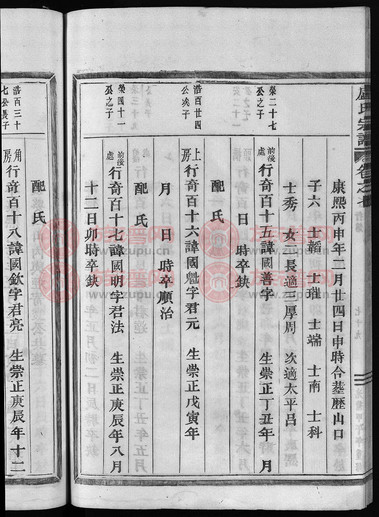 盧氏宗譜
卷之七
康熙丙申年二月廿四日申時合墓歷山口
子六 士韜 士璀 士端 士南 士科
士秀 女二長適三厚周 次適太平呂
榮二十七公之子
前後處
行奇百十五諱國善字 生崇正丁丑年 月
日 時卒缺
配氏
浩百廿四公次子
上房
行奇百十六諱國魁字君元 生崇正戊寅年
月 日 時卒順治
配氏
榮四十一公之子
前後處
行奇百十七諱國明字君法 生崇正庚辰年八月
十二日卯時卒缺
配氏
浩百三十七公長子
角房
行奇百十八諱國欽字君亮 生崇正庚辰年十二